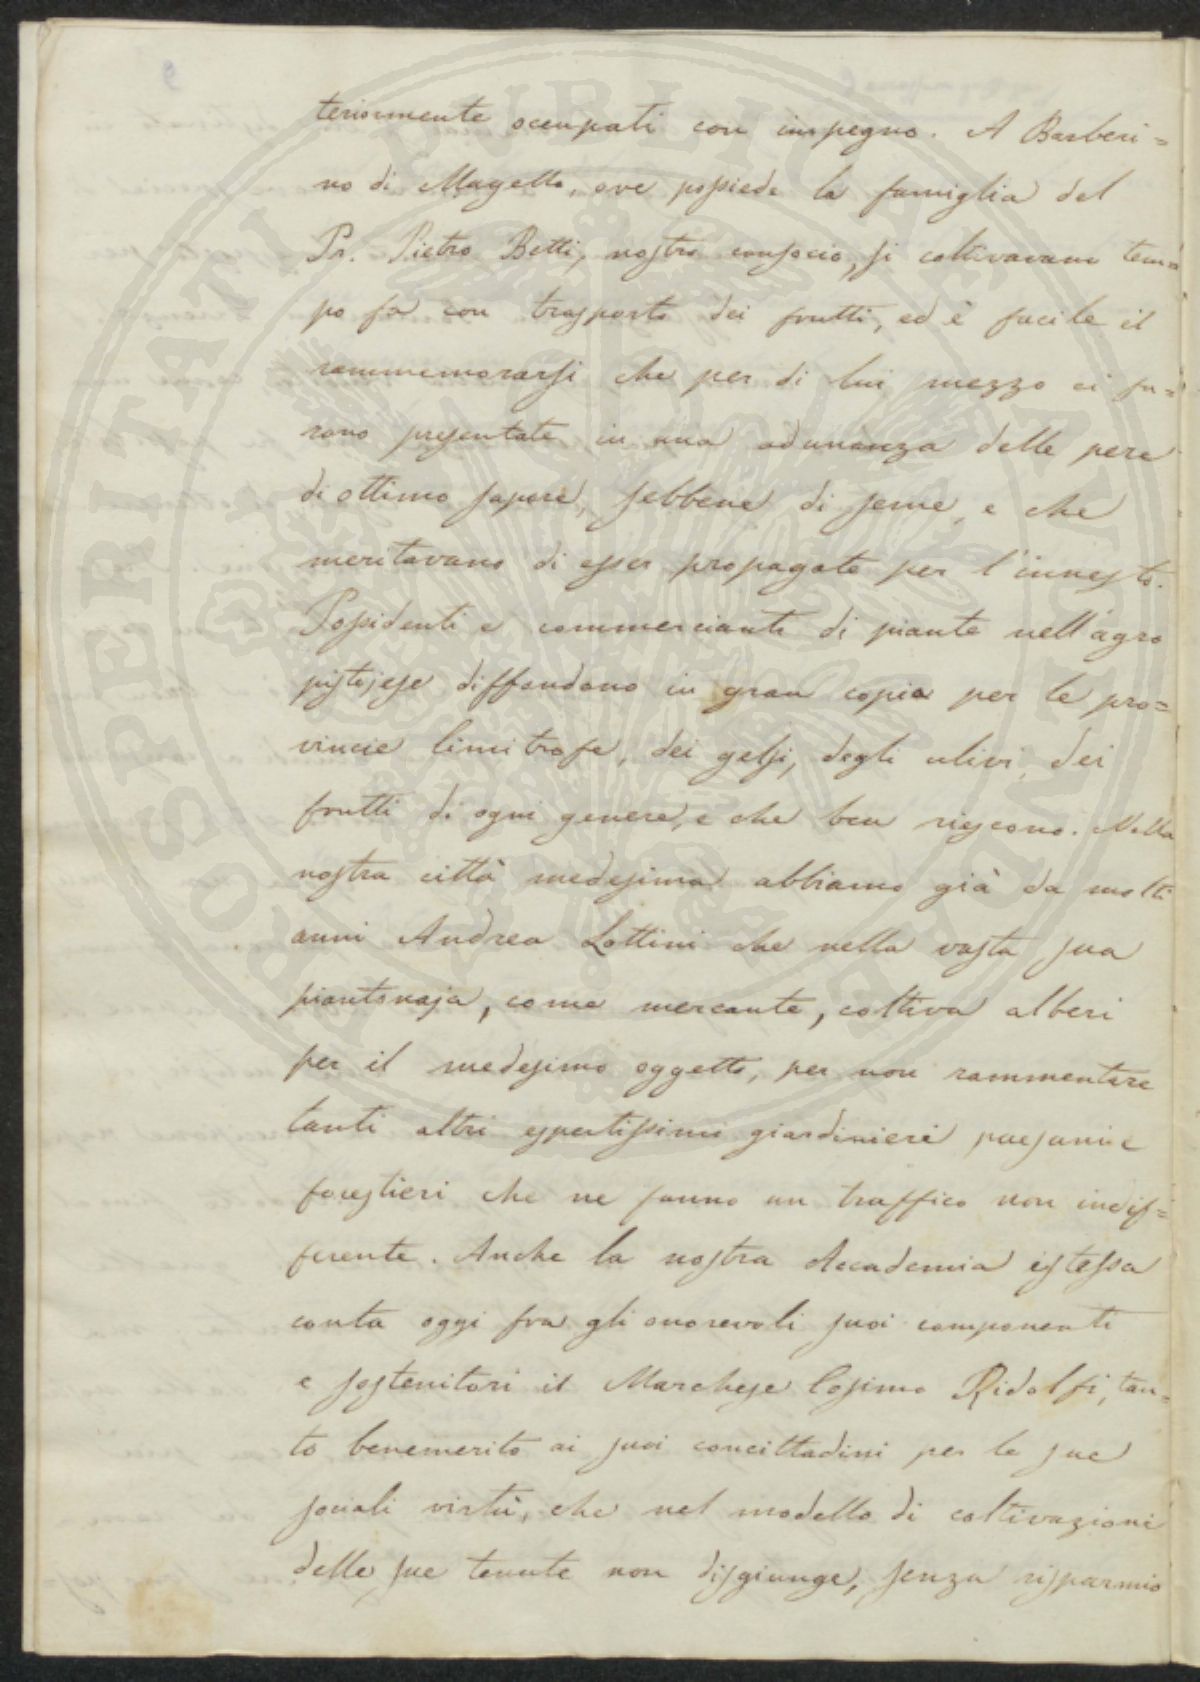 teriormente occupati con impegno. A Barberi=
no di Mugello, ove possiede la famiglia del
Pr. Pietro Betti, nostro consocio, si coltivavano tem=
po fa con trasporto dei frutti, ed è facile il
rammemorarsi che per di lui mezzo ci fu=
rono presentate in una adunanza delle pere
di ottimo sapore, sebbene di seme, e che
meritavano di esser propagate per l'innesto.
Possidenti e commercianti di piante nell'agro
pistojese diffondono in gran copia per le pro=
vincie limitrofe, dei gelsi, degli ulivi, dei
frutti di ogni genere, e che ben riescono. Nella
nostra città medesima abbiamo già da molti
anni Andrea Lottini che nella vasta sua
piantonaja, come mercante, coltiva alberi
per il medesimo oggetto, per non rammentare
tanti altri espertissimi giardinieri paesani e
forestieri che ne fanno un traffico non indif=
ferente. Anche la nostra Accademia istessa
conta oggi fra gli onorevoli suoi componenti
e sostenitori il Marchese Cosimo Ridolfi, tan=
to benemerito ai suoi concittadini per le sue
sociali virtù, che nel modello di coltivazioni
delle sue tenute non disgiunge, senza risparmio
PROSPERITATI PUBLICAE AUGENDAE